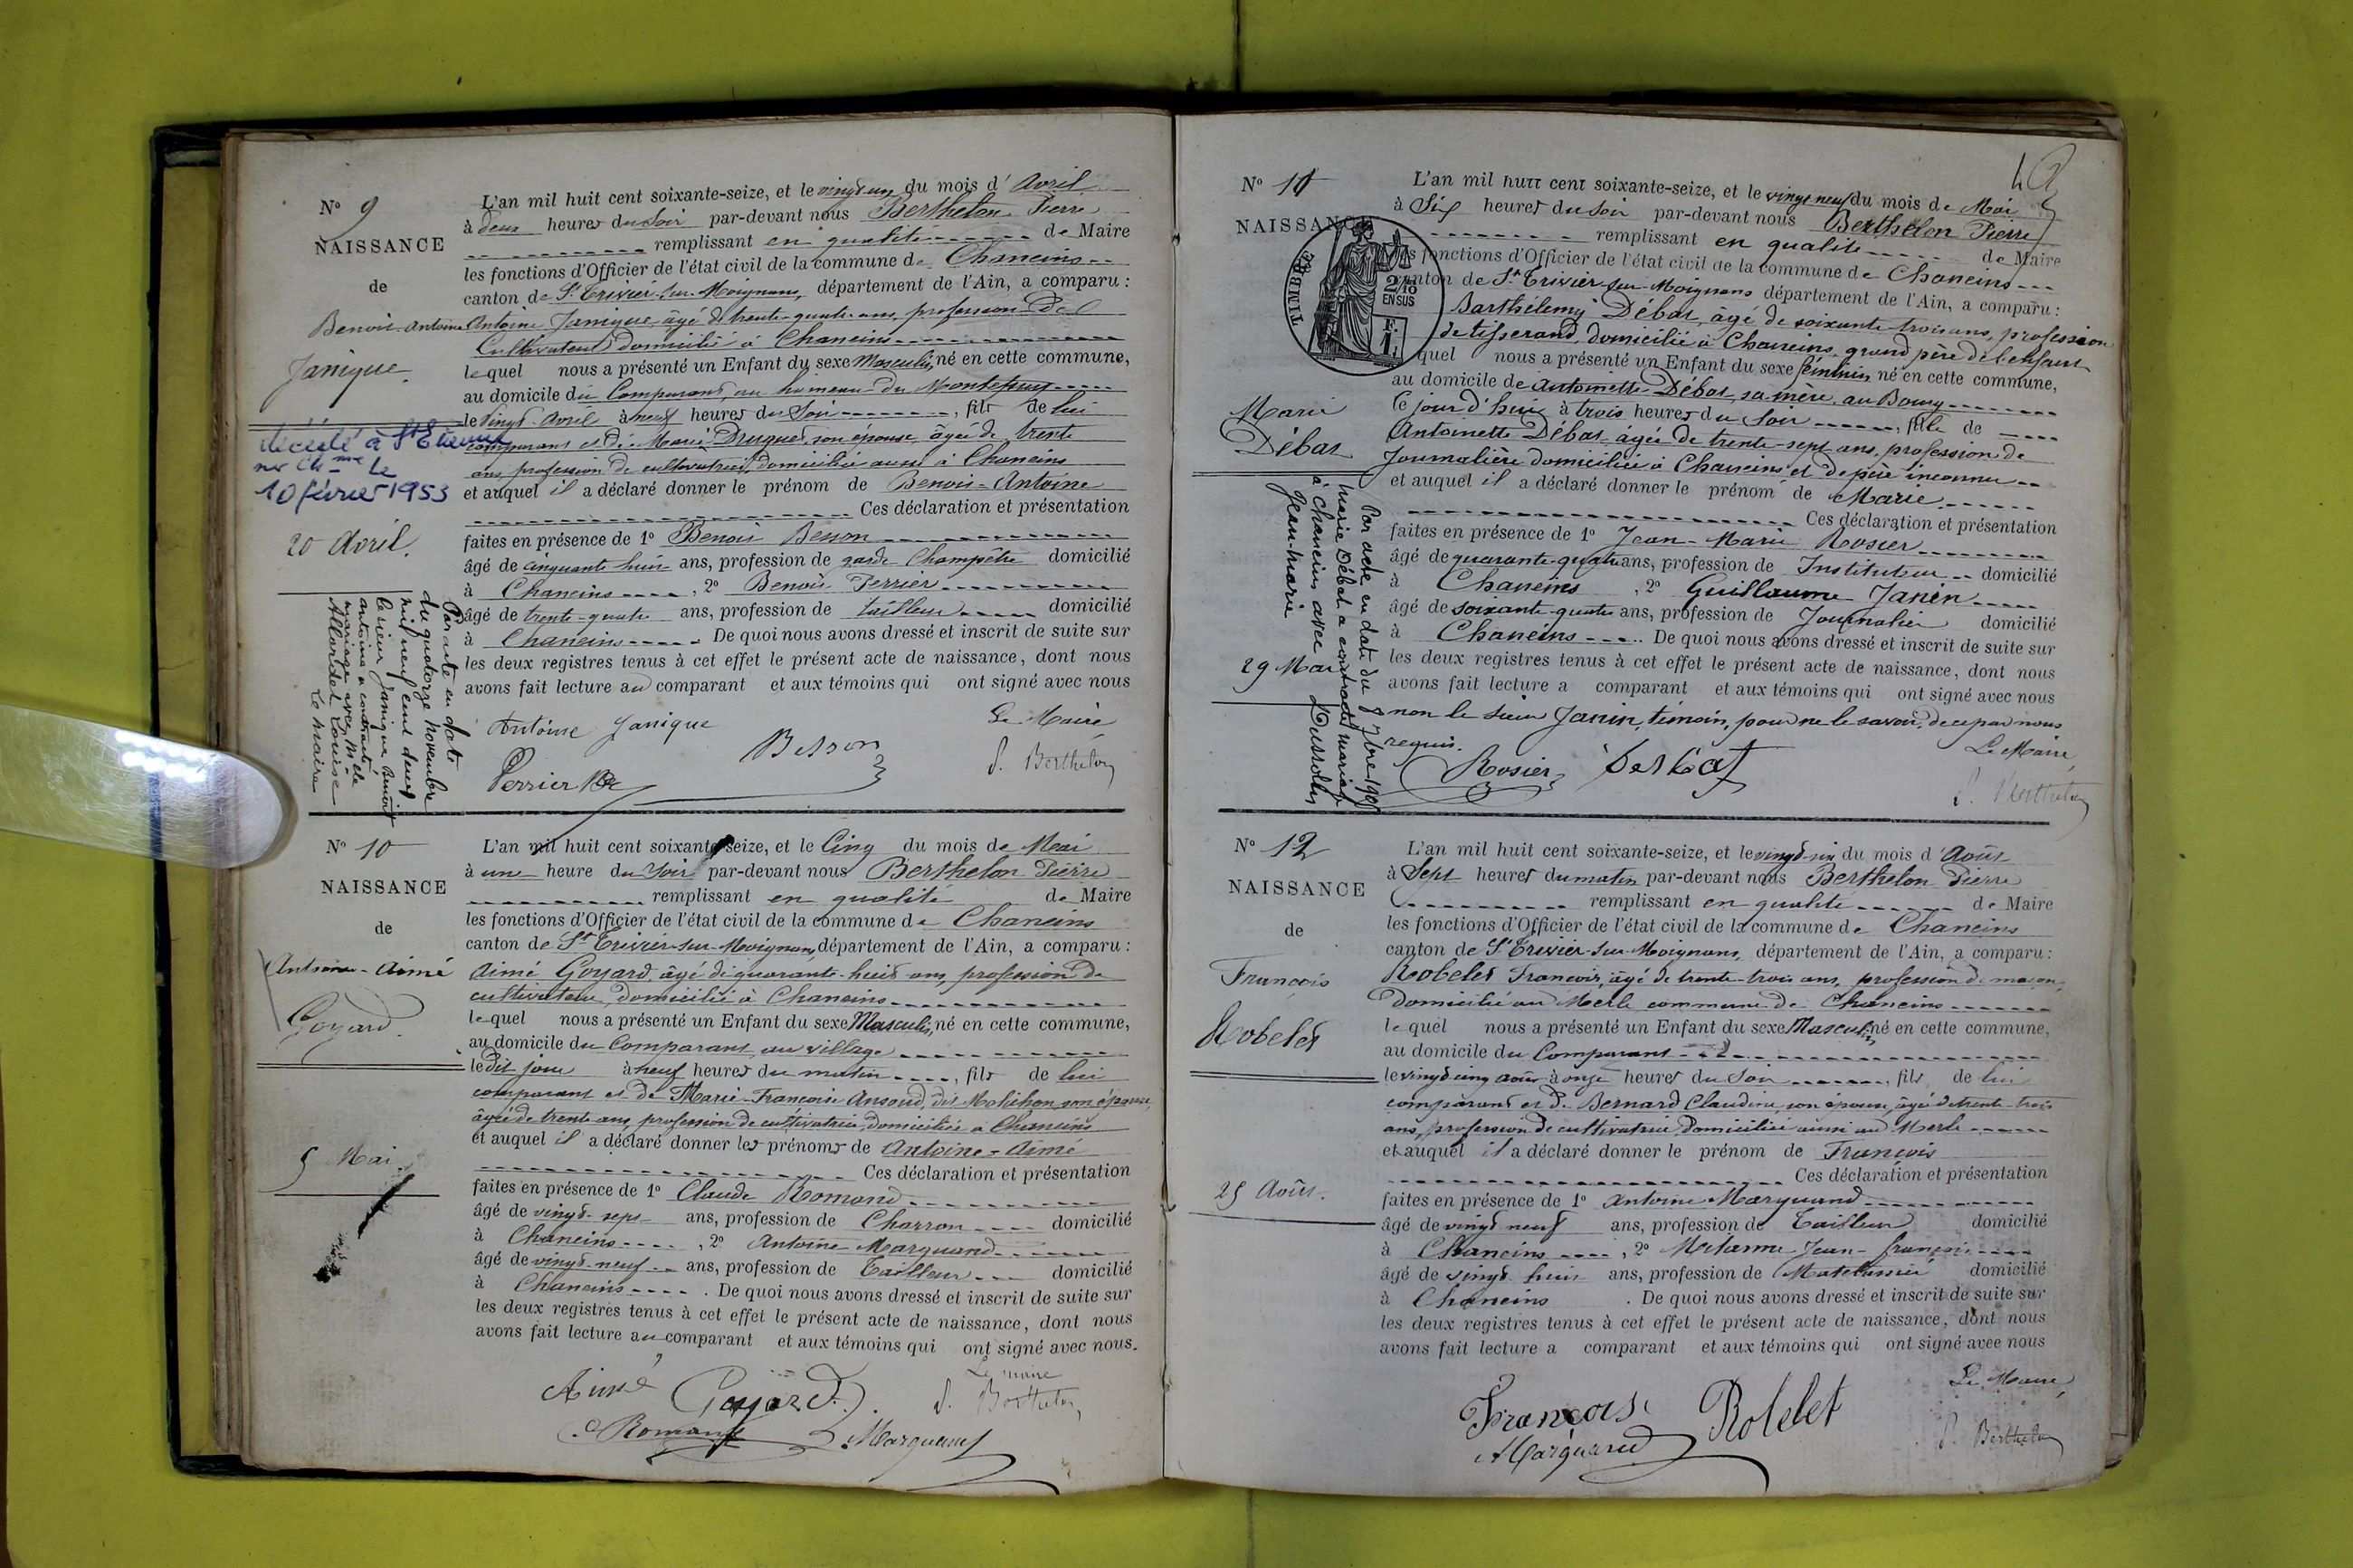 N° 9
NAISSANCE
de
Benoit-Antoine
Janique
décédé à St Etienne
sur Ch-nne le
10 février 1953
20 Avril.
Par acte en date
du quatorze Novembre
mil neuf cent
le sieur Janique Benoit
antoine a contracté
mariage avec Mlle
Louise
Le Maire
L'an mil huit cent soixante-seize, et le vingt-un du mois d' Avril
à deux heures du Soir par-devant nous Berthelon Pierre
remplissant en qualité de Maire
les fonctions d'Officier de l'état civil de la commune de Chaneins
canton de St Trivier-sur-Moignans, département de l'Ain, a comparu :
Antoine Janique, âgé de trente-quatre ans, profession de
Cultivateur domicilié à Chaneins
lequel nous a présenté un Enfant du sexe Masculin, né en cette commune,
au domicile du Comparant, au hameau de
le Vingt Avril à neuf heures du Soir, fils de lui
comparant et de Marie Druguet son épouse âgée de trente
ans profession de cultivatrice domiciliée aussi à Chaneins
et auquel il a déclaré donner le prénom de Benoit-Antoine
Ces déclaration et présentation
faites en présence de 1° Benoit Besson
âgé de cinquante huit ans, profession de garde Champêtre domicilié
à Chaneins, 2° Benoit Perrier
âgé de trente-quatre ans, profession de tailleur domicilié
à Chaneins. De quoi nous avons dressé et inscrit de suite sur
les deux registres tenus à cet effet le présent acte de naissance, dont nous
avons fait lecture au comparant et aux témoins qui ont signé avec nous
Antoine Janique
Le Maire
Besson
P. Berthelon
Perrier
N° 10
NAISSANCE
de
Antoine-Aimé
Goyard.
5 Mai.
L'an mil huit cent soixante-seize, et le Cinq du mois de Mai
à une heure du Soir par-devant nous Berthelon Pierre
remplissant en qualité de Maire
les fonctions d'Officier de l'état civil de la commune de Chaneins
canton de St Trivier-sur-Moignans, département de l'Ain, a comparu :
Aimé Goyard, âgé de quarante-huit ans, profession de
cultivateur, domicilié à Chaneins
lequel nous a présenté un Enfant du sexe Masculin, né en cette commune,
au domicile du Comparant au village
le dit jour à neuf heures du matin, fils de lui
comparant et de Marie-Françoise Ansoud, dit Molichon son épouse,
âgée de trente ans, profession de cultivatrice, domiciliée à Chaneins
et auquel il a déclaré donner les prénoms de Antoine-Aimé
Ces déclaration et présentation
faites en présence de 1° Claude Romand
âgé de vingt-sept ans, profession de Charron domicilié
à Chaneins, 2° Antoine Marquand
âgé de vingt-neuf ans, profession de Tailleur domicilié
à Chaneins. De quoi nous avons dressé et inscrit de suite sur
les deux registres tenus à cet effet le présent acte de naissance, dont nous
avons fait lecture au comparant et aux témoins qui ont signé avec nous.
Le Maire
Aimé Goyard.
P. Berthelon
Romand
Marquand
N° 11
NAISSANCE
Marie
Débat
TIMBRE
2/10
EN SUS
Par acte en date du 7bre 1908
Marie Débat a contracté mariage
à Chaneins avec Dussolin
Jean-Marie
29 Mai
L'an mil huit cent soixante-seize, et le vingt neuf du mois de Mai
à Six heures du Soir par-devant nous Berthelon Pierre
remplissant en qualité de Maire
les fonctions d'Officier de l'état civil de la commune de Chaneins
canton de St Trivier-sur-Moignans département de l'Ain, a comparu :
Barthélemy Débat, âgé de soixante trois ans, profession
de tisserand, domicilié à Chaneins, grand père de l'enfant
quel nous a présenté un Enfant du sexe féminin né en cette commune,
au domicile de Antoinette Débat sa mère, au Bourg
le jour d'hui à trois heures du Soir, fille de
Antoinette Débat, âgée de trente-sept ans, profession de
Journalière domiciliée à Chaneins et de père inconnu
et auquel il a déclaré donner le prénom de Marie
Ces déclaration et présentation
faites en présence de 1° Jean-Marie Rosier
âgé de quarante-quatre ans, profession de Instituteur domicilié
à Chaneins, 2° Guillaume Janin
âgé de soixante-quatre ans, profession de Journalier domicilié
à Chaneins. De quoi nous avons dressé et inscrit de suite sur
les deux registres tenus à cet effet le présent acte de naissance, dont nous
avons fait lecture a comparant et aux témoins qui ont signé avec nous
non le sieur Janin, témoin, pour ne le savoir, de ce par nous
requis.
Le Maire,
Rosier
P. Berthelon
N° 12
NAISSANCE
de
François
Robelet
25 Août.
L'an mil huit cent soixante-seize, et le vingt-six du mois d'Août
à Sept heures du matin par-devant nous Berthelon Pierre
remplissant en qualité de Maire
les fonctions d'Officier de l'état civil de la commune de Chaneins
canton de St Trivier-sur-Moignans, département de l'Ain, a comparu :
Robelet François, âgé de trente-trois ans, profession de maçon,
Domicilié au Merle commune de Chaneins
lequel nous a présenté un Enfant du sexe Masculin, né en cette commune,
au domicile du Comparant
le vingt cinq août à onze heures du Soir, fils de lui
comparant et de Bernard Claudine, son épouse, âgée de trente-trois
ans, profession de cultivatrice, Domiciliée aussi au Merle
et auquel il a déclaré donner le prénom de François
Ces déclaration et présentation
faites en présence de 1° Antoine Marquand
âgé de vingt neuf ans, profession de Tailleur domicilié
à Chaneins, 2° Jean-François
âgé de vingt huit ans, profession de Matelassier domicilié
à Chaneins. De quoi nous avons dressé et inscrit de suite sur
les deux registres tenus à cet effet le présent acte de naissance, dont nous
avons fait lecture a comparant et aux témoins qui ont signé avec nous
Le Maire,
François Robelet
Marquand
P. Berthelon